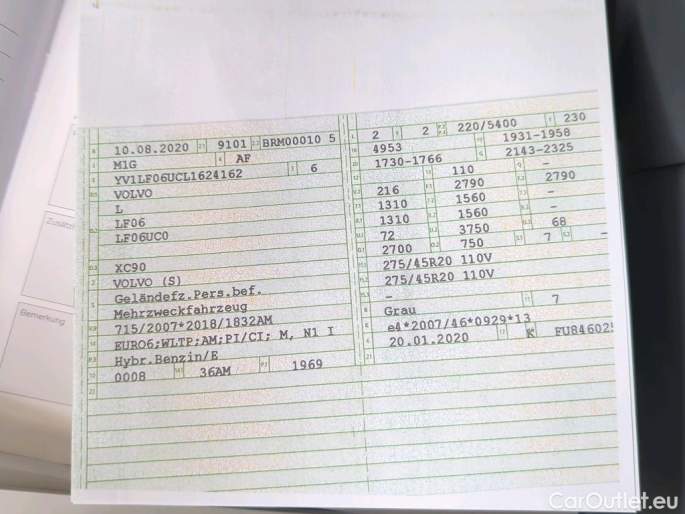 10.08.2020 9101 BRM00010 5
M1G AF
YV1LF06UCL1624162 6
VOLVO
L
LF06
LF06UC0
XC90
VOLVO (S)
Geländefz.Pers.bef.
Mehrzweckfahrzeug
715/2007*2018/1832AM
EURO6;WLTP;AM;PI/CI; M, N1 I
Hybr.Benzin/E
0008 36AM 1969
2 2 220/5400 230
4953 1931-1958
1730-1766 2143-2325
110 -
216 2790 2790
1310 1560 -
1310 1560 -
72 3750 68
2700 750 7 -
275/45R20 110V
275/45R20 110V
-
Grau 7
e4*2007/46*0929*13
20.01.2020 K EU846025
Bemerkung
CarOutlet.eu